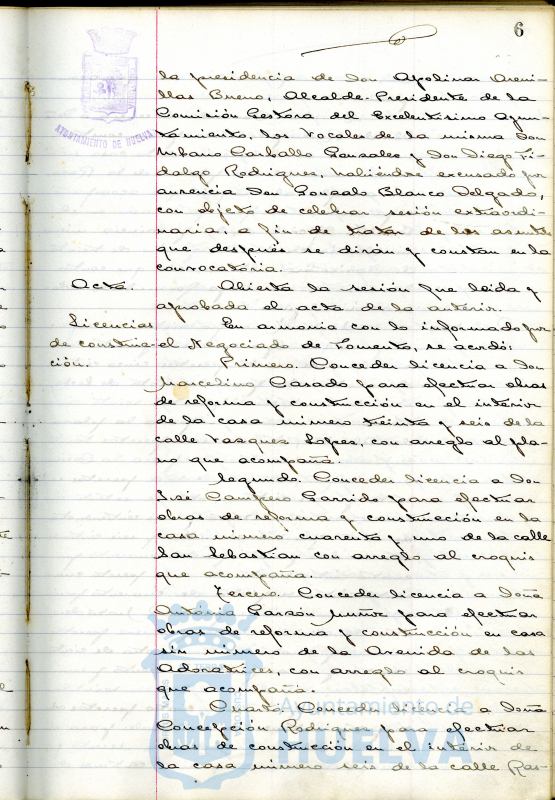 6
AYUNTAMIENTO DE HUELVA
la presidencia de Don Apolinar Areni-
llas Bueno, Alcalde-Presidente de la
Comisión Gestora del Excelentísimo Ayun-
tamiento, los Vocales de la misma Don
Urbano Carballo Gonzales y Don Diego Fi-
dalgo Rodrigues, habiéndose excusado por
ausencia Don Gonzalo Blanco Delgado,
con objeto de celebrar sesión extraordi-
naria, a fin de tratar de los asuntos
que después se dirán y constan en la
convocatoria.
Acta. Abierta la sesión fue leída y
aprobada el acta de la anterior.
Licencias En armonía con lo informado por
de construc- el Negociado de Fomento, se acordó:
ción. Primero. Conceder licencia a Don
Marcelino Casado para efectuar obras
de reforma y construcción en el interior
de la casa número treinta y seis de la
calle Vasques Lopes, con arreglo al pla-
no que acompaña.
Segundo. Conceder licencia a Don
José Campero Garrido para efectuar
obras de reforma y construcción en la
casa número cuarenta y uno de la calle
San Sebastian con arreglo al croquis
que acompaña.
Tercero. Conceder licencia a Doña
Antonia Garzón Muñoz para efectuar
obras de reforma y construcción en casa
sin número de la Avenida de las
Adoratrices, con arreglo al croquis
que acompaña.
Cuarto. Conceder licencia a Doña
Concepción Rodrigues para efectuar
obras de construcción en el interior de
la casa número seis de la calle Ras-
Ayuntamiento de
HUELVA